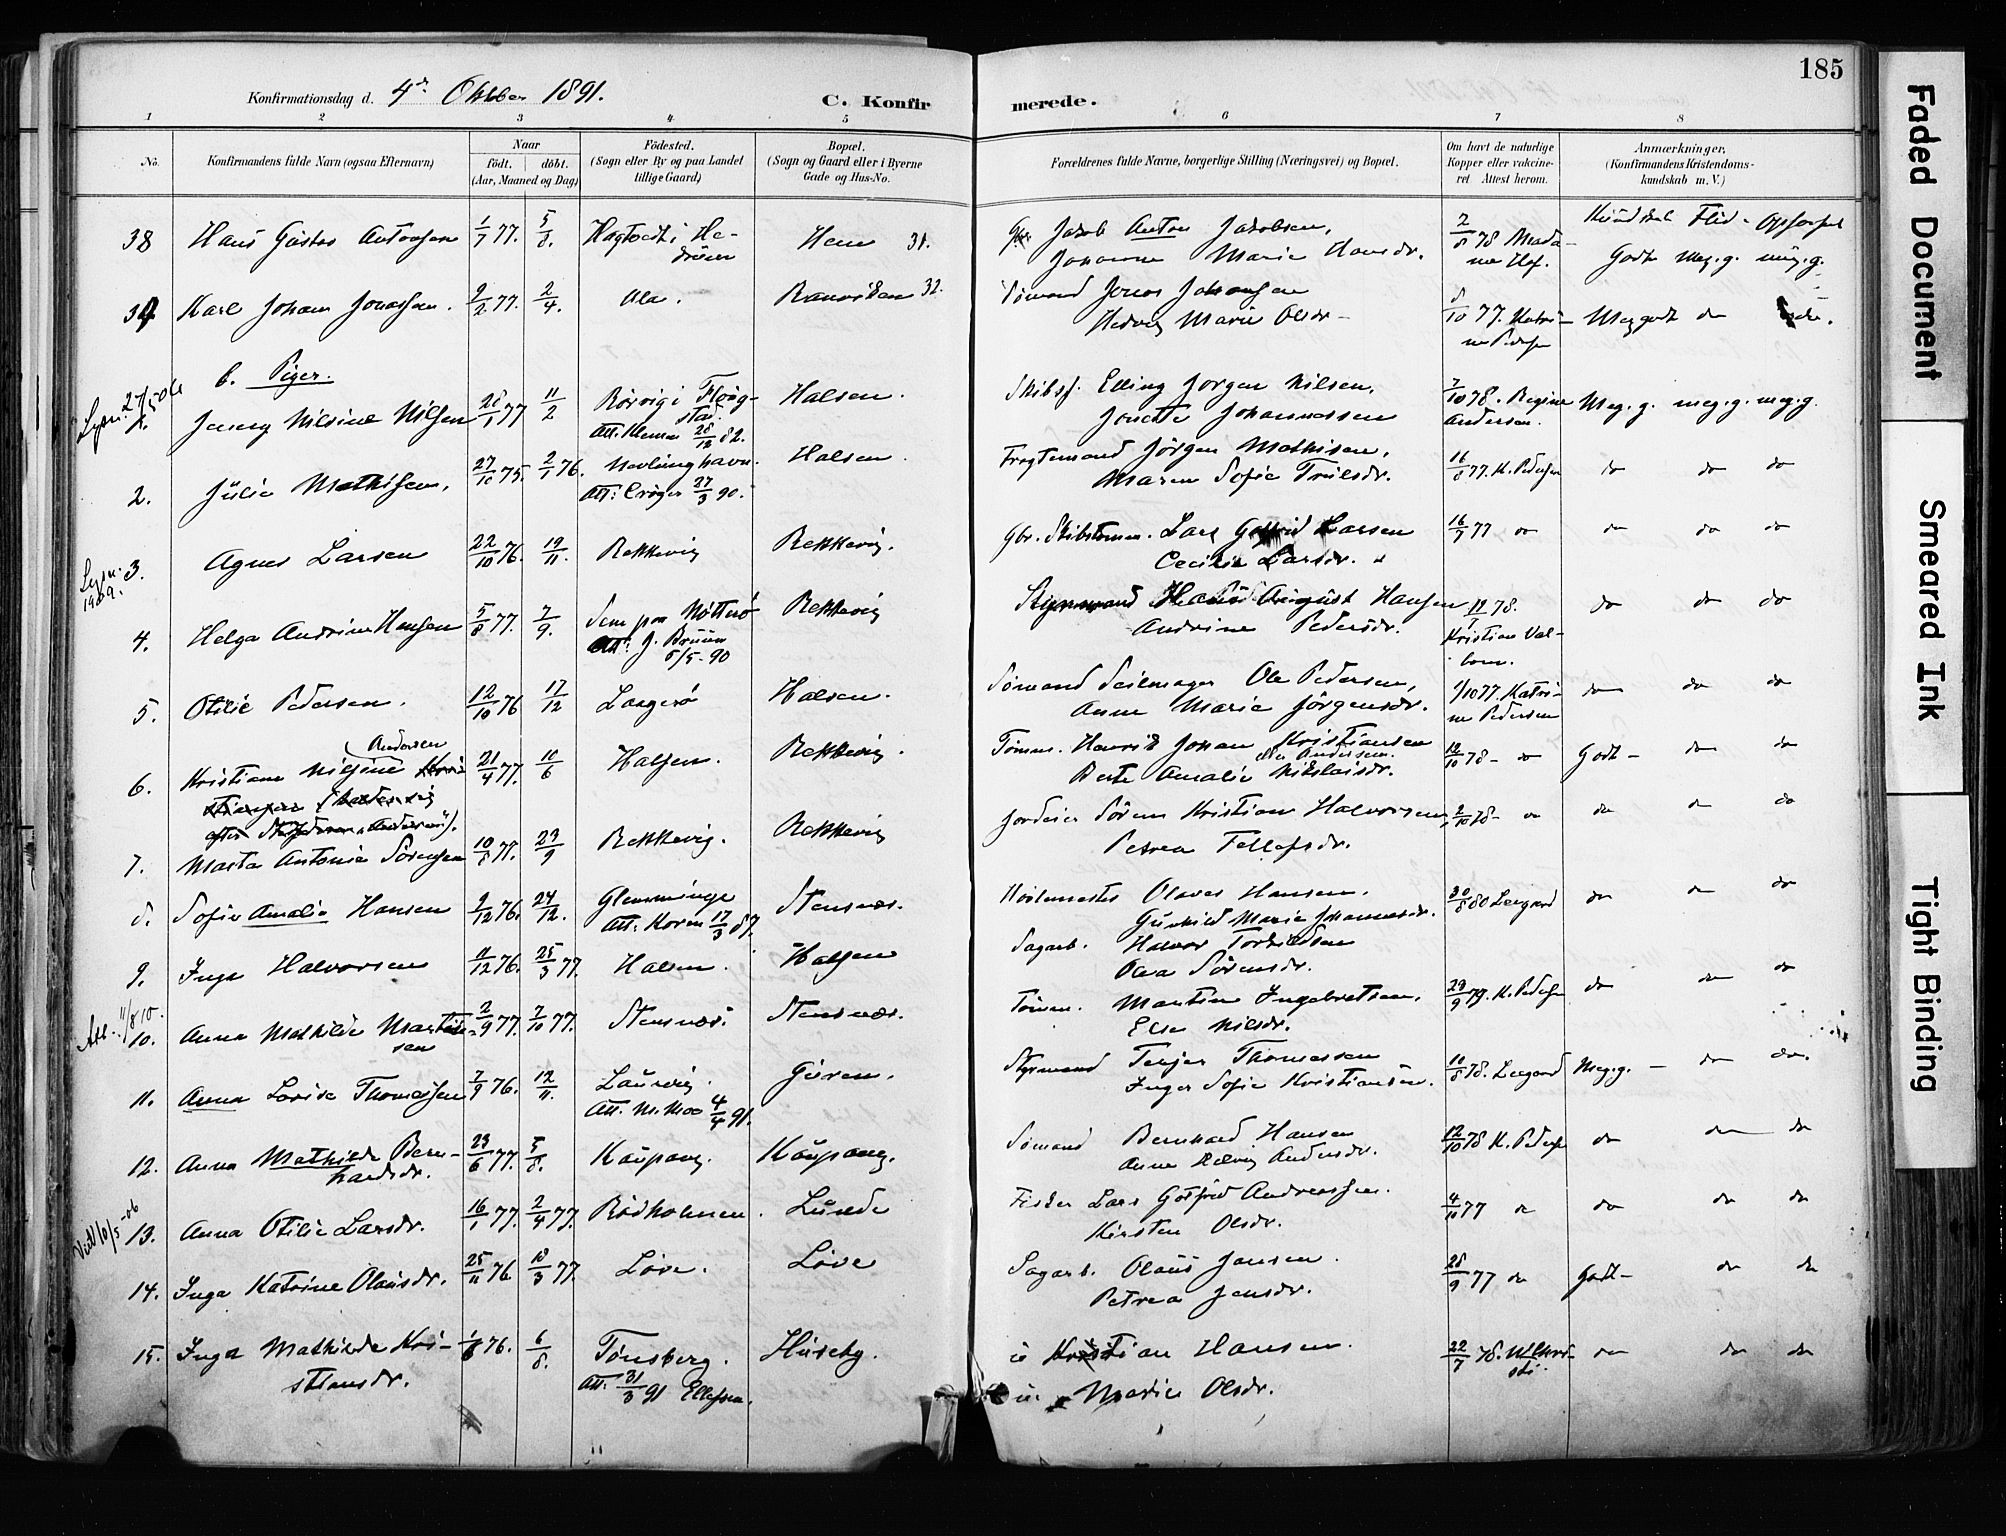 185
Konfirmationsdag d. 4de Oktober 1891.
C. Konfirmerede.
1 2 3 4 5 6 7 8
No. Konfirmandens fulde Navn (ogsaa Efternavn) Naar født. døbt. (Aar, Maaned og Dag) Fødested. (Sogn eller By og paa Landet tillige Gaard) Bopæl. (Sogn og Gaard eller i Byerne Gade og Hus-No. Forældrenes fulde Navne, borgerlige Stilling (Næringsvei) og Bopæl. Om havt de naturlige Kopper eller vakcineret. Attest herom. Anmærkninger, (Konfirmandens Kristendomskundskab m. V.)
Kundskab Flid Opførsel
38 Hans Gustav Antonsen 1/7 77. 5/8. Hem 31. Jakob Anton Jakobsen, 2/8 78
Johanne Marie Hansdr. Godt meg. g. meg. g.
39 Karl Johan Jonassen. 9/2 77. 2/4. Ula. 32. Sømand Jonas Johansen 8/10 77. Katri-
Hedvig Marie Olsdr. ne Pedersen Meg godt do
b. Piger.
Lysn. 27/5 06
1. Jenny Nilsine Nilssen 28/1 77 11/2 Halsen. Skibsf. Elling Jørgen Nilsen, 7/10 78. Regine Andersen. Meg. g. meg. g. meg. g.
Att. Kleman 28/12 82. Jonette Johannessen
2. Julie Mathisen, 27/10 75. 2/1 76. Nevlunghavn. Halsen Fragtemand Jørgen Mathisen, 16/8 77. K. Pedersen do do do
Att: Crøger 27/3 90. Maren Sofie Trulsdr.
Lysn. 1909.
3. Agnes Larsen 22/10 76. 19/11. Rekkevig Rekkevig. Gbr. Skibstømm. Lars Gotfrid Larsen 16/9 77 do do do do
Cecilie Larsdr.
4. Helga Andrine Hansen 5/8 77. 7/9. Sem paa Nøtterø Rekkevig Styrmand Hans August Hansen 11/7 78. Kristian Valbom. do do do
Att: J. Bruun 5/5-90 Andrine Pedersdr.
5. Otilie Pedersen. 12/10 76 17/12 Langesø Halsen. Sømand Seilmager Ole Pedersen, 1/10 77. Katrine Pedersen do do do
Anne Marie Jørgensdr.
6. Kristiane Nilsine Andersen 21/4 77. 10/6 Halsen. Rekkevig. Tømm. Henrik Johan Kristiansen eller Andersen 12/10 78 - do Godt - do do
Berte Amalie Nikolaisdr.
7. Marta Antonie Sørensen 10/8 77. 23/9 Rekkevig. Rekkevig Jordeier Søren Kristian Halvorsen, 2/10 78 - do do do do
Petrea Tellefsdr.
8. Sofie Amalie Hansen 9/12 76. 24/12. Glemminge Stensnæs. Olaves Hansen. 30/8 80 Leegaard do do do
Att: Koren 17/3 87. Gunhild Marie Johannesdr.
9. Inga Halvorsen 11/12 76. 25/3 77. Halsen. Halsen Sagarb. Halvor Torkildsen
Olea Sørensdr. 29/9 79. K. Pedersen do do do
Att. 11/8 10.
10. Anna Mathilde Martinsen 2/9 77. 7/10 77. Stensnæs. Stensnæs. Tømm. Martin Ingebretsen,
Else Nilsdr.
11. Anna Lovise Thomassen 7/9 76. 12/11. Laurvig. Guren. Styrmand Terjer Thomassen 10/8 78. Leegaard Meg. g. - do do.
Att. M. Moe 4/4 91. Inger Sofie Kristiansen.
12. Anna Mathilde Bernhardsdr. 23/6 77. 5/8. Kaupang. Kaupang. Sømand Bernhard Hansen 12/10 78 K. Pedersen do do do
Anne Hedvig Andersdr.
Vied 10/5-06
13. Anna Otilie Larsdr. 16/1 77. 2/4 77. Rødholmen. Lunde Fisker Lars Gotfrid Andreassen. 4/10 77 do do do do
Kirsten Olsdr.
14. Inga Katrine Olausdr. 25/11 76 18/3 77. Løve. Løve Sagarb. Olaus Jansen. 28/9 77 do Godt - do do
Petrea Jensdr.
15. Inga Mathilde Kristiansdr. 1/6 76. 6/8. Tønsberg. Huseby. Kristian Hansen. 22/7 78. do do do
Att: 31/3 91 Ellefsen. Marie Olsdr.
Faded Document
Smeared Ink
Tight Binding